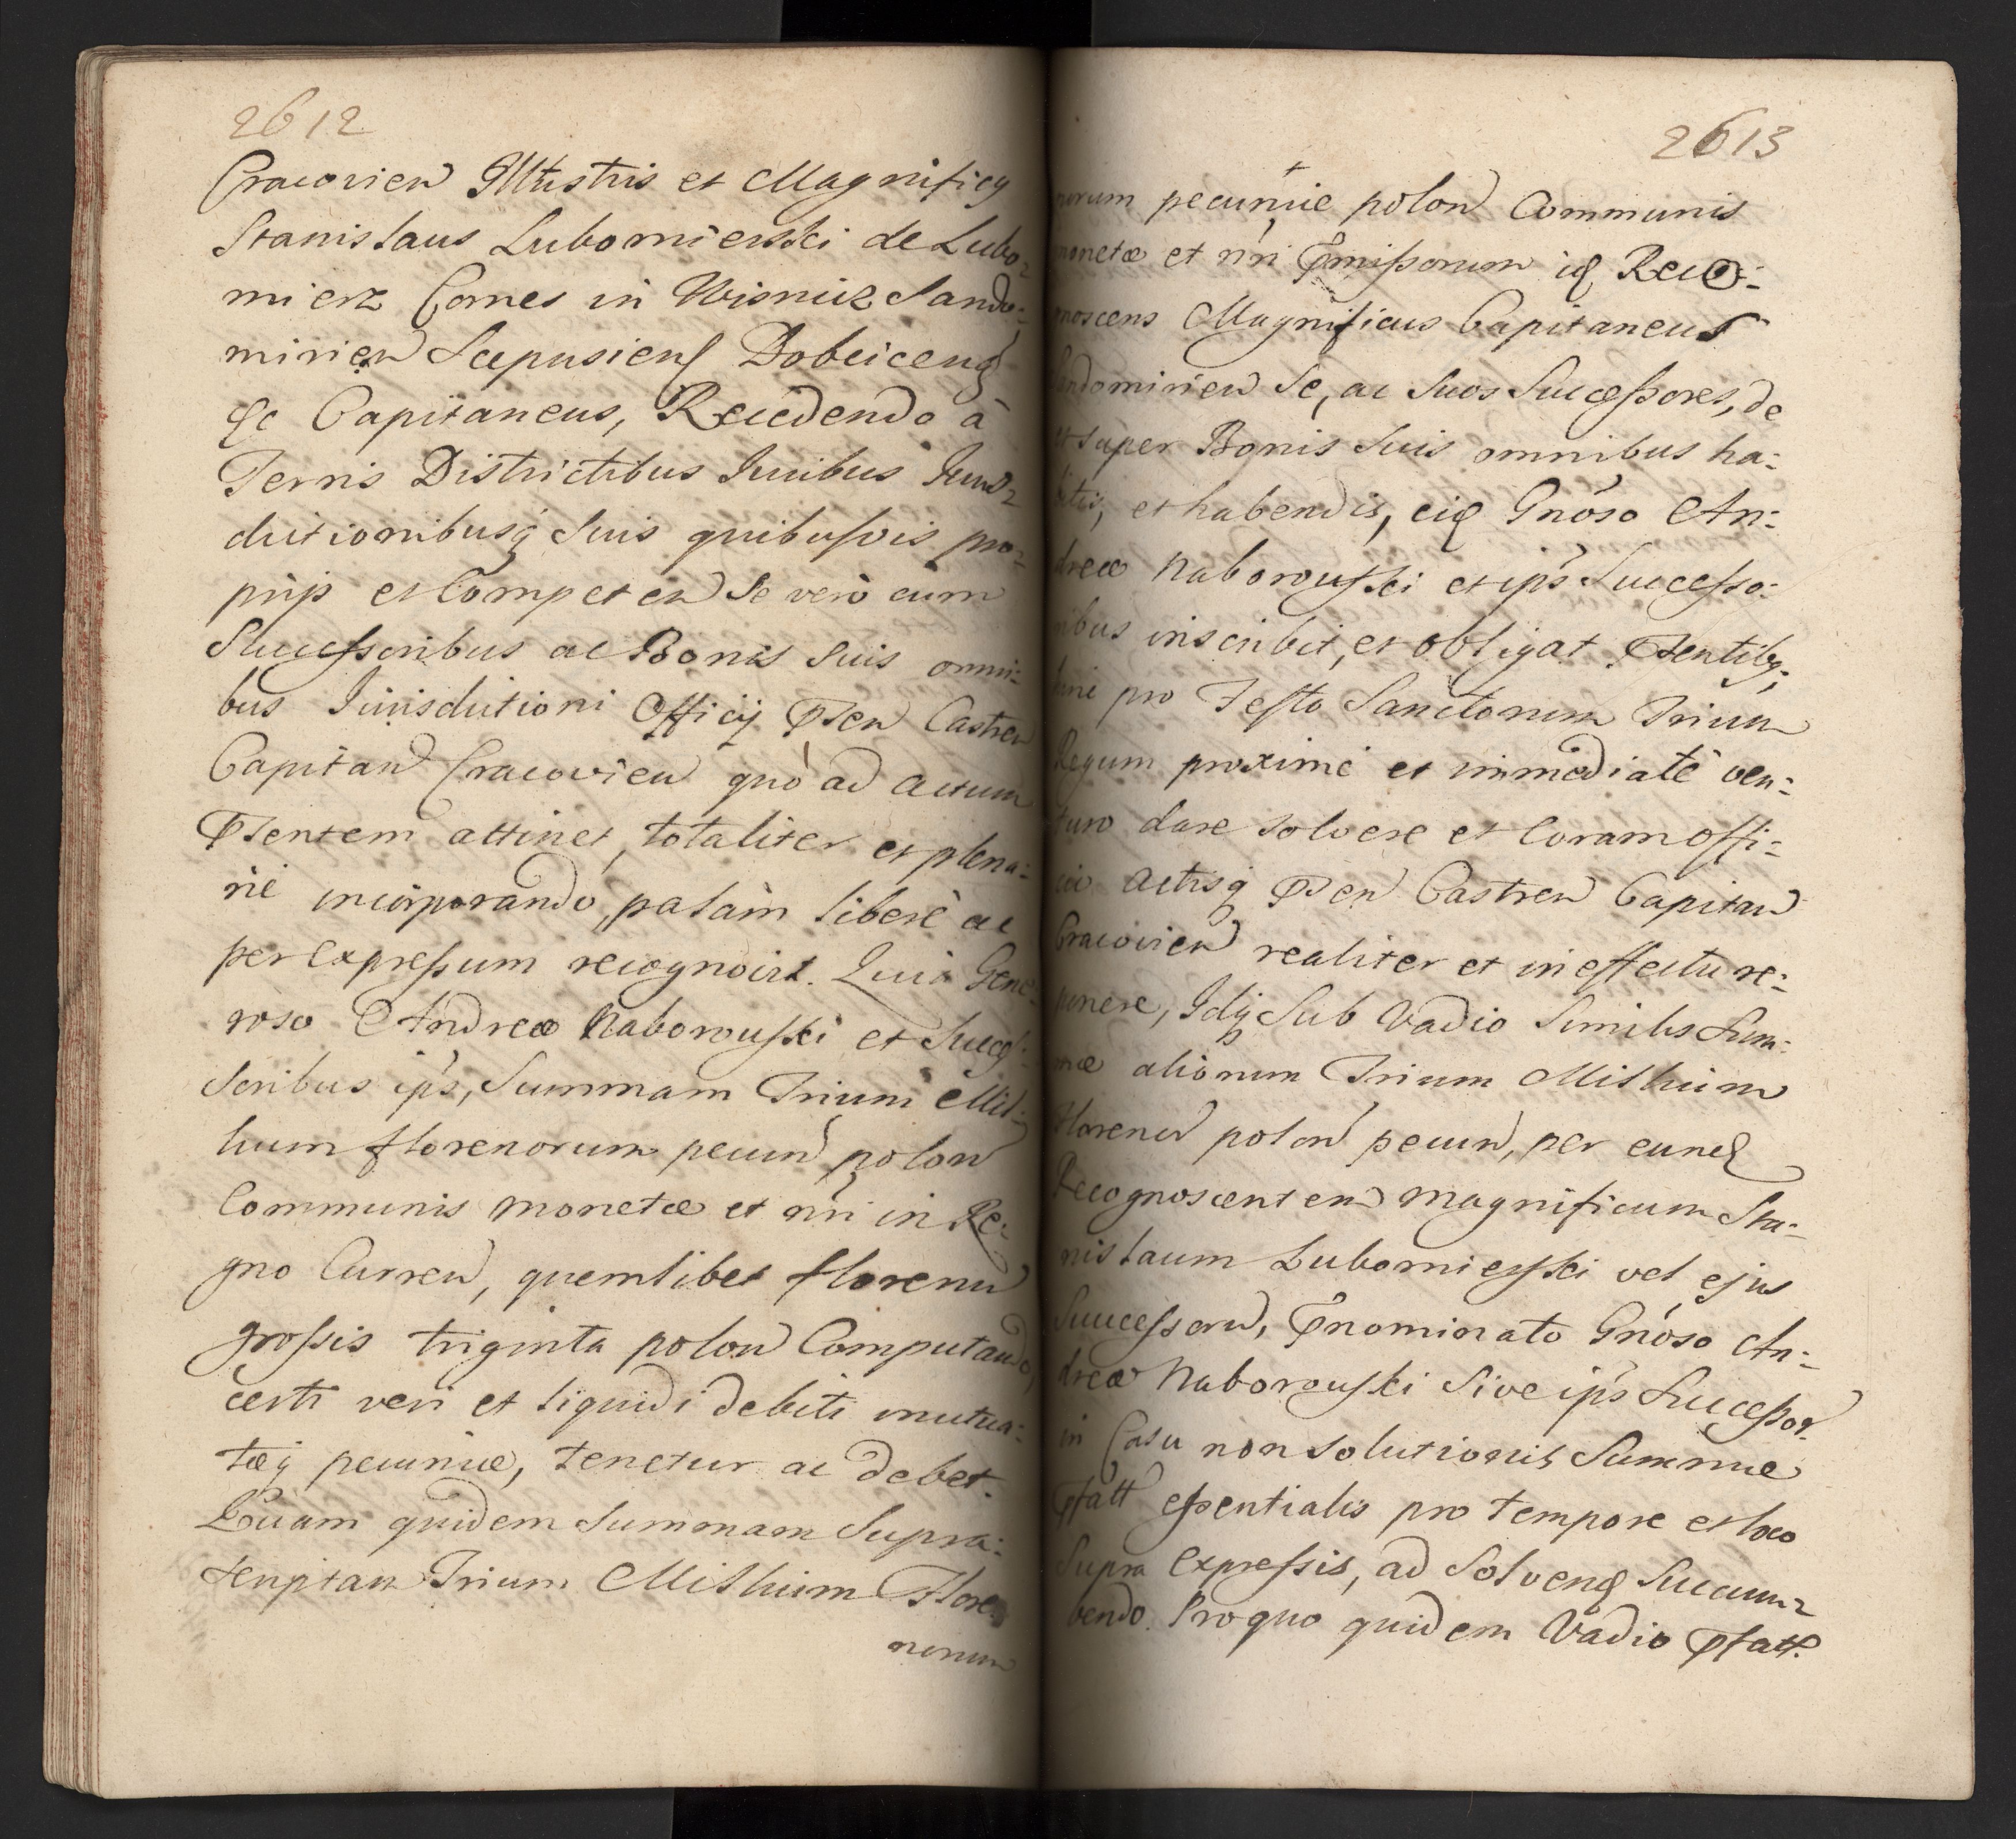 2612
Cracovien Illustris et Magnificq
Stanislaus Lubomierski de Lubo=
mierz Comes in Wisnicz Sando=
mirien Scepusienſ Dobcicenſ
&c Capitaneus, Recedendo à
Terris Districtibus Juribus Juris=
dictionibusq́ Suis quibusvis pro=
prijs et Competen Se verò cum
Succeſsoribus ac Bonis Suis omni=
bus Jurisdictioni Officij Pſen Castren
Capitan Cracovien quò ad actum
Pſentem attinet, totaliter et plena=
riè incorporando, palàm liberè ac
per expreſsum recognovit. Quia Gene=
roso Andreæ Naborouſki et Succeſ=
soribus ip̃s, Summam Trium Mil=
lium florenorum pecun polon
Communis monetæ et nr̃i in Re=
gno Curren, quemlibet florenu
groſsis triginta polon Computando,
certi veri et liquidi debiti mutua=
tæq́ pecuniæ, tenetur ac debet.
Quam quidem Summam Supra=
scriptam Trium Millium Flore=
norum
2613
norum pecuniæ polon Communis
monetæ et nr̃i P̃miſsorum iđ Reco=
gnoscens Magnificus Capitaneus
Sandomirien Se, ac Suos Succeſsores, de
et super Bonis Suis omnibus ha=
bitis, et habendis, eiđ Gnõso An=
dreæ Naborouſki et ip̃s Succeſso=
ribus inscribit, et obligat Pſentibq,
pro Feſto Sanctorum Trium
Regum proximè et immediatè ven=
turo dare solvere et Coram offi=
cio Actisq́ Pſen Castren Capitan
Cracovien realiter et in effectu re=
ponere, Idq́ Sub Vadio Similis Sum=
mæ aliorum Trium Millium
Floren polon pecun, per eunđ
Recognoscentem Magnificum Sta=
nislaum Lubomierſki vel ejus
Succeſsores, P̃nominato Gnõso An=
dreæ Naborouſki Sive ip̃s Succeſsor
in Casu non solutionis Summæ
Pſatt eſsentialis pro tempore et loco
Supra Expreſsis, ad Solvenđ Succum=
bendo. Pro quo quidem Vadio Pſatt.